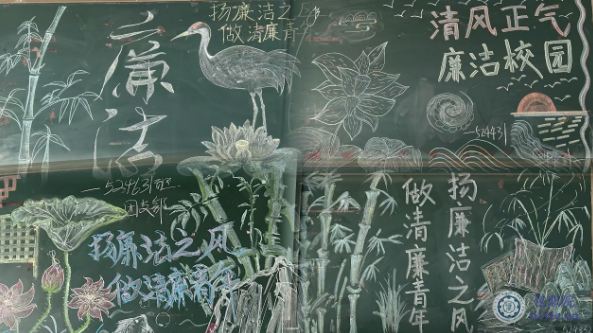 廉洁
—524631班
团支部
扬廉洁之风
做清廉青年
清风正气
廉洁校园
—524431
扬廉洁之风
做清廉青年
扬廉洁之风
做清廉青年